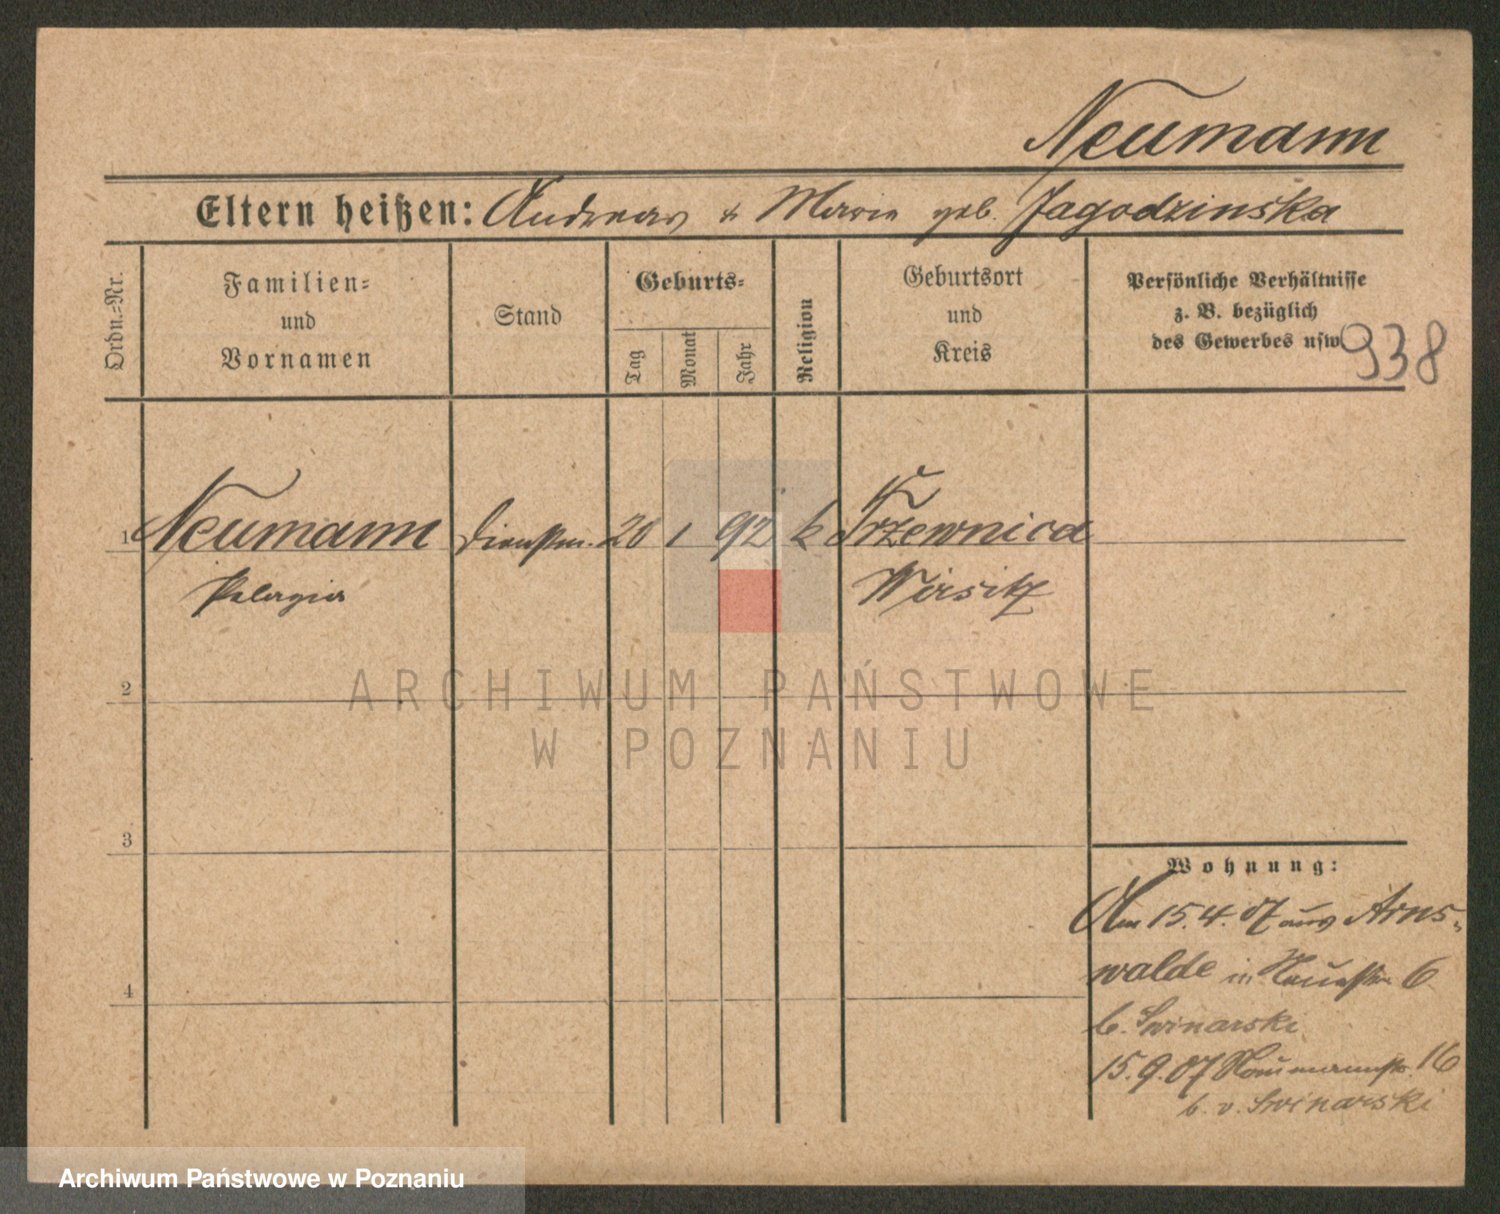 Neumann
Eltern heißen: Andreas & Marie geb. Jagodzinska
Ordn.-Nr.
Familien-
und
Vornamen
Stand
Geburts-
Tag
Monat
Jahr
Religion
Geburtsort
und
Kreis
Persönliche Verhältnisse
z. B. bezüglich
des Gewerbes usw.
938
1 Neumann Dienstm. 20 1 92 k Tržewnica
Pelagia Wirsitz
2
ARCHIWUM PAŃSTWOWE
W POZNANIU
3
Wohnung:
Am 15.4.07 aus Arns-
walde in 6
4
b. Swinarski
15.9.07 Naumannstr. 16
b. v. Swinarski
Archiwum Państwowe w Poznaniu